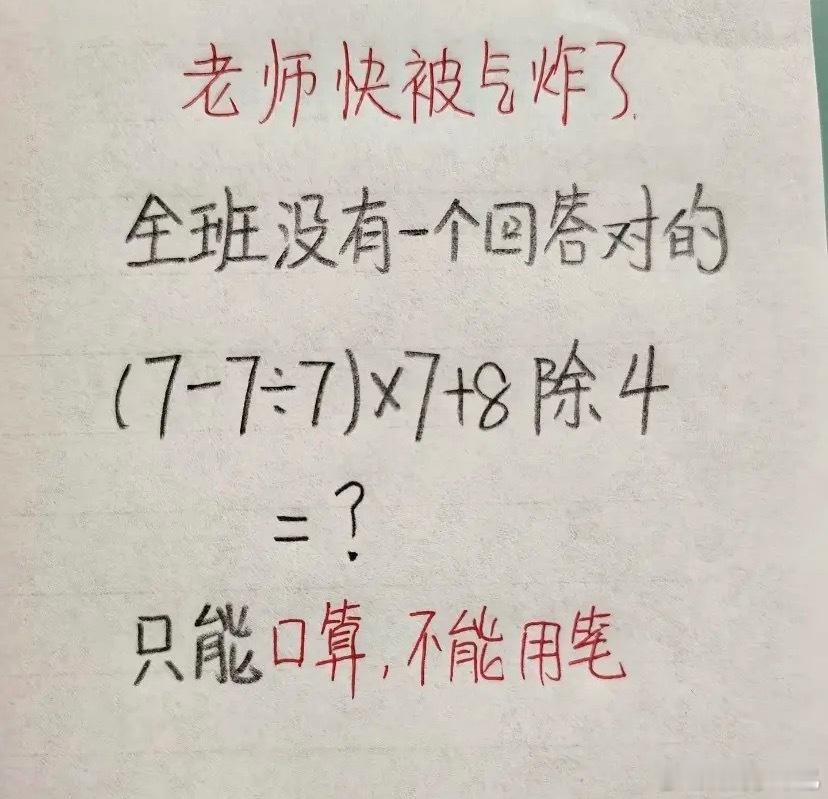 老师快被气炸了
全班没有一个回答对的
(7-7÷7)×7+8除4
=?
只能口算,不能用笔